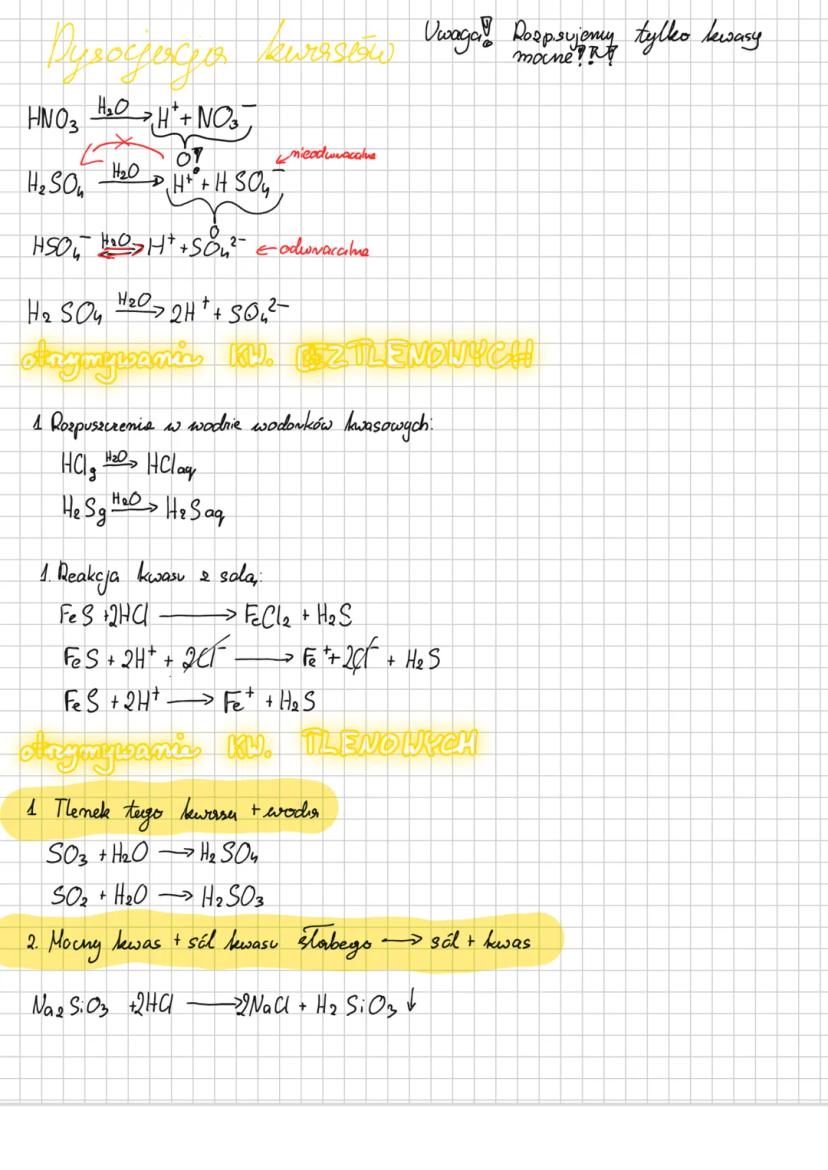 Dysocjacja kwasów
Uwaga! Rozpisujemy tylko kwasy
mocne!?!?
HNO₃ —H₂O→ H⁺ + NO₃⁻
nieodwracalna
H₂SO₄ —H₂O→ H⁺ + HSO₄⁻
HSO₄⁻ ⇌H₂O H⁺ + SO₄²⁻ ← odwracalna
H₂SO₄ —H₂O→ 2H⁺ + SO₄²⁻
otrzymywanie KW. BEZTLENOWYCH
1 Rozpuszczenie w wodzie wodorków kwasowych:
HCl g —H₂O→ HCl aq
H₂S g —H₂O→ H₂S aq
1. Reakcja kwasu z solą:
FeS + 2HCl → FeCl₂ + H₂S
FeS + 2H⁺ + 2Cl⁻ → Fe⁺ + 2Cl⁻ + H₂S
FeS + 2H⁺ → Fe⁺ + H₂S
otrzymywanie KW. TLENOWYCH
1 Tlenek tego kwasu + woda
SO₃ + H₂O → H₂SO₄
SO₂ + H₂O → H₂SO₃
2. Mocny kwas + sól kwasu słabego → sól + kwas
Na₂SiO₃ + 2HCl → 2NaCl + H₂SiO₃ ↓